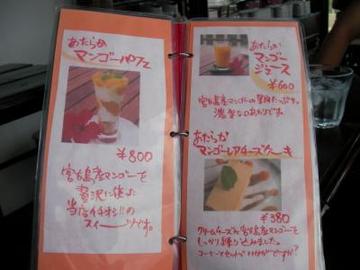 あたらか
マンゴーパフェ
¥800
宮古島産マンゴーを
贅沢に使った
当店イチオシ!!の
スイーツです。
あたらか
マンゴー
ジュース
¥600
宮古島産マンゴーの果肉たっぷり。
濃厚な
あたらか
マンゴーレアチーズケーキ
¥380
クリームチーズに宮古島産マンゴーを
しっかり練り込みました。
コーヒーとセットで いかがですか?